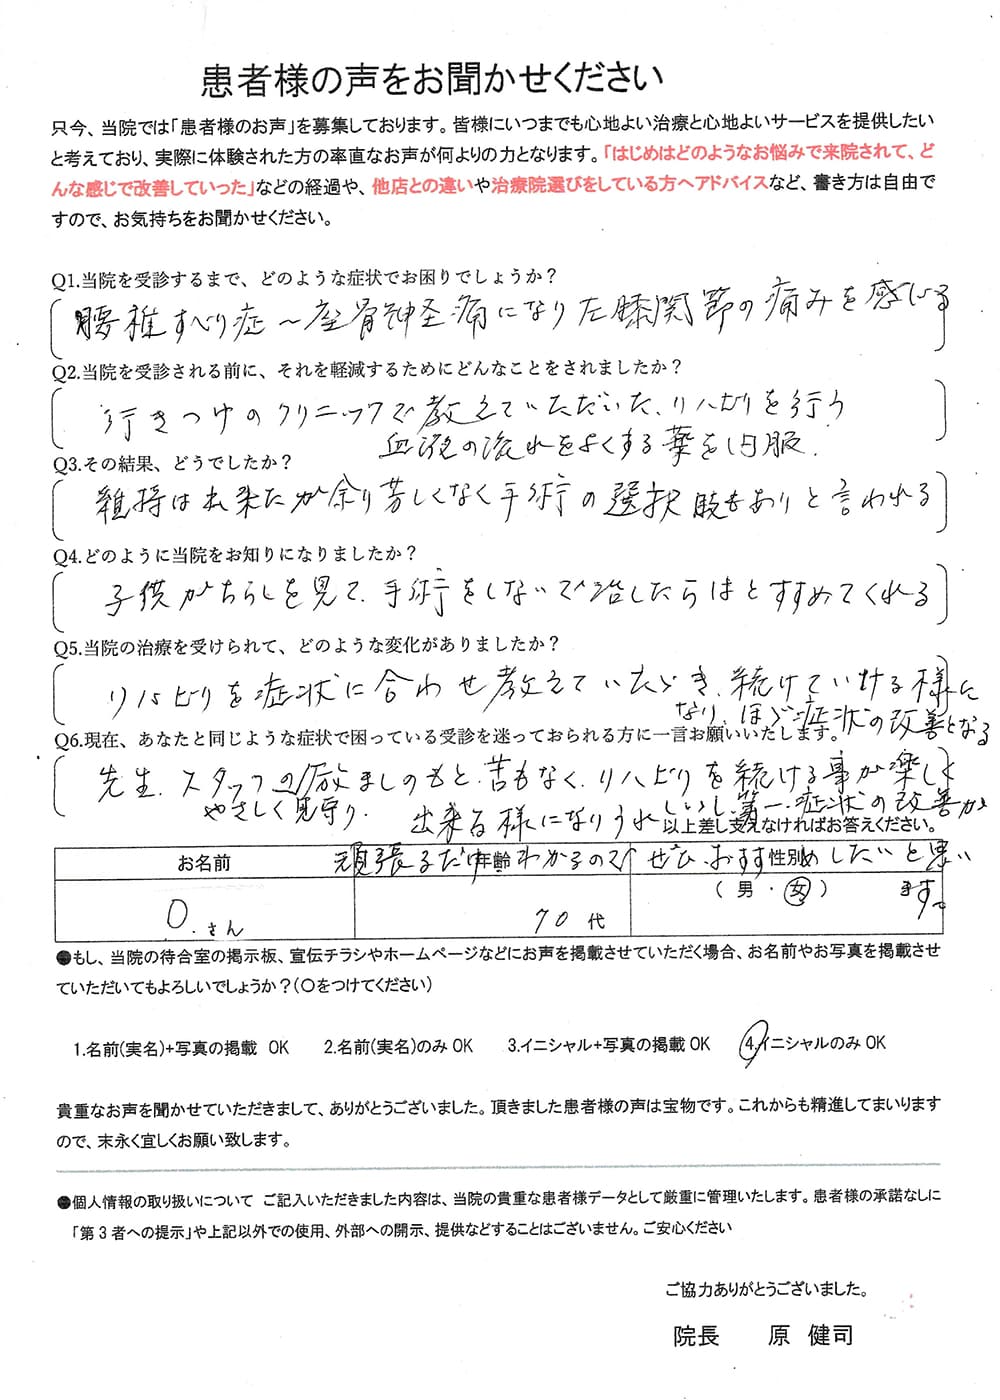 患者様の声をお聞かせください
只今、当院では「患者様のお声」を募集しております。皆様にいつまでも心地よい治療と心地よいサービスを提供したい
と考えており、実際に体験された方の率直なお声が何よりの力となります。「はじめはどのようなお悩みで来院されて、ど
んな感じで改善していった」などの経過や、他店との違いや治療院選びをしている方へアドバイスなど、書き方は自由で
すので、お気持ちをお聞かせください。
Q1.当院を受診するまで、どのような症状でお困りでしょうか?
腰椎すべり症〜座骨神経痛になり左膝関節の痛みを感じる
Q2.当院を受診される前に、それを軽減するためにどんなことをされましたか?
行きつけのクリニックで教えていただいた、リハビリを行う
血液の流れをよくする薬を内服.
Q3.その結果、どうでしたか?
維持は出来たが余り芳しくなく手術の選択肢もありと言われる
Q4.どのように当院をお知りになりましたか?
子供がちらしを見て、手術をしないで治したらはとすすめてくれる
Q5.当院の治療を受けられて、どのような変化がありましたか?
リハビリを症状に合わせ教えていただき、続けていける様に
なり、ほぼ症状の改善となる
Q6.現在、あなたと同じような症状で困っている受診を迷っておられる方に一言お願いいたします。
先生、スタッフの励ましのもと、苦もなく、リハビリを続ける事が楽しく
やさしく見守り、
出来る様になりうれしいし、第一、症状の改善が
以上差し支えなければお答えください。
頑張るだけわかるので ぜひ、おすすめしたいと思い
ます。
お名前 年齢 性別
(男・女)
O.さん 70代
●もし、当院の待合室の掲示板、宣伝チラシやホームページなどにお声を掲載させていただく場合、お名前やお写真を掲載させ
ていただいてもよろしいでしょうか?(○をつけてください)
1.名前(実名)+写真の掲載 OK 2.名前(実名)のみ OK 3.イニシャル+写真の掲載 OK 4.イニシャルのみ OK
貴重なお声を聞かせていただきまして、ありがとうございました。頂きました患者様の声は宝物です。これからも精進してまいります
ので、末永く宜しくお願い致します。
●個人情報の取り扱いについて ご記入いただきました内容は、当院の貴重な患者様データとして厳重に管理いたします。患者様の承諾なしに
「第3者への提示」や上記以外での使用、外部への開示、提供などすることはございません。ご安心ください
ご協力ありがとうございました。
院長 原 健司